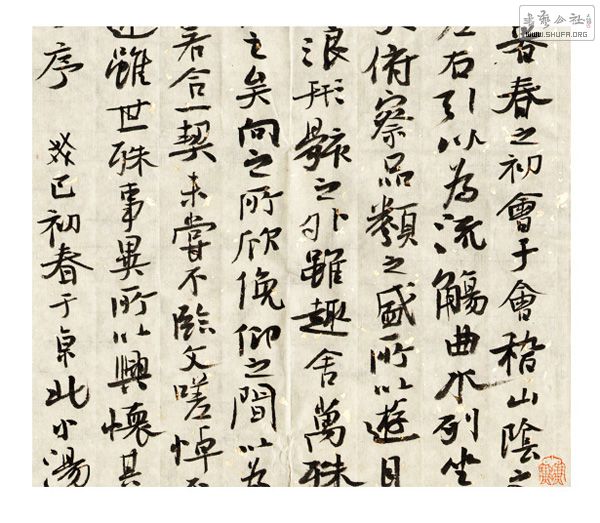 暮春之初會于會稽山陰之
左右引以為流觴曲水列坐
大俯察品類之盛所以遊目
浪形骸之外雖趣舍萬殊
之矣向之所欣俛仰之間以為
若合一契未嘗不臨文嗟悼不
述雖世殊事異所以興懷其
序 癸巳初春于京北小湯
書藝公社
WWW.SHUFA.ORG